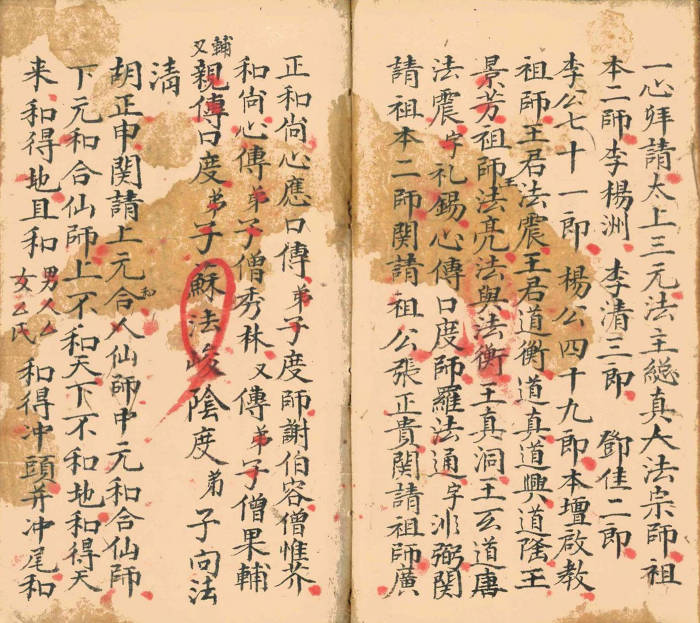 一心拜請太上三元法主總真大法宗師祖
本二師李楊洲　李清三郎　鄧佳二郎
李公七十一郎楊公四十九郎本壇啟教
祖師王君法震王君道衡道真道興道隆王
景芳祖師法亮法與法衡王真洞王玄道唐
法震字礼錫心傳口度師羅法通字 弼関
請祖本二師関請祖公張正貴関請祖師廣
正和尚心應口傳弟子度師謝伯容僧惟芥
和尚心傳弟子僧秀林又傳弟子僧果輔
又輔親傳口度弟子蘇法峻陰度弟子向法
清
胡正申関請上元和合仙師中元和合仙師
下元和合仙師上不和天下不和地和得天
来和得地且和男人厶女厶氏和得冲頭并冲尾和